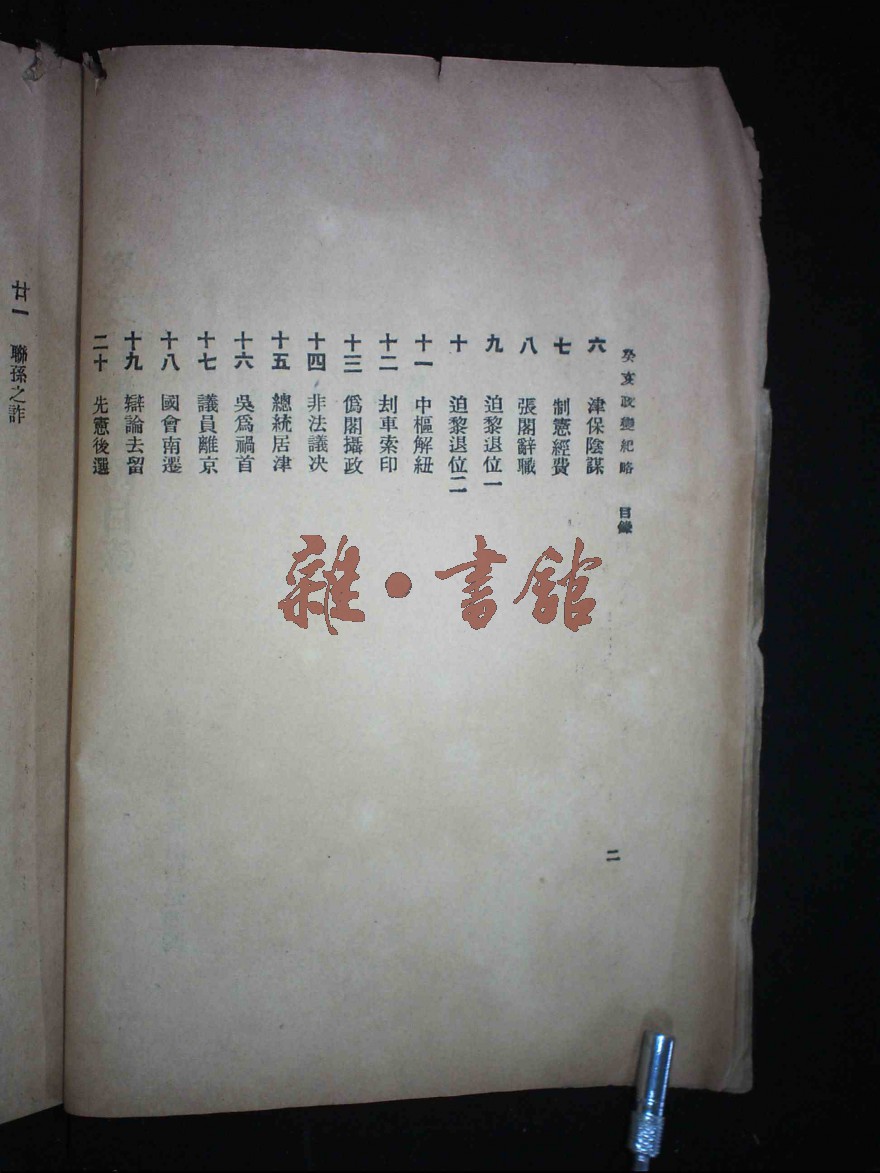 癸亥政變紀略 目錄
六 津保陰謀
七 制憲經費
八 張閣辭職
九 迫黎退位一
十 迫黎退位二
十一 中樞解紐
十二 刦車索印
十三 僞閣攝政
十四 非法議决
十五 總統居津
十六 吳爲禍首
十七 議員離京
十八 國會南遷
十九 辯論去留
二十 先憲後選
二
廿一 聯孫之詐
雜·書館